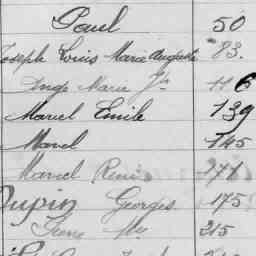 Paul 50
Joseph Louis Marie Auguste 83.
Ange Marie Jh 116
Marcel Emile 139
Marcel 145
Marcel René 171
Dupin Georges 175
Pierre Me 215